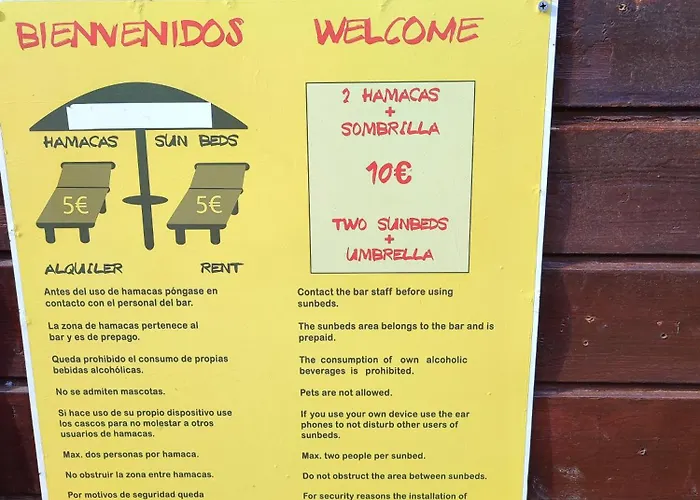 BIENVENIDOS
WELCOME
HAMACAS
SUN BEDS
5€
5€
ALQUILER
RENT
2 HAMACAS
+
SOMBRILLA
10€
TWO SUNBEDS
+
UMBRELLA
Antes del uso de hamacas póngase en
contacto con el personal del bar.
La zona de hamacas pertenece al
bar y es de prepago.
Queda prohibido el consumo de propias
bebidas alcohólicas.
No se admiten mascotas.
Si hace uso de su propio dispositivo use
los cascos para no molestar a otros
usuarios de hamacas.
Max. dos personas por hamaca.
No obstruir la zona entre hamacas.
Por motivos de seguridad queda
Contact the bar staff before using
sunbeds.
The sunbeds area belongs to the bar and is
prepaid.
The consumption of own alcoholic
beverages is prohibited.
Pets are not allowed.
If you use your own device use the ear
phones to not disturb other users of
sunbeds.
Max. two people per sunbed.
Do not obstruct the area between sunbeds.
For security reasons the installation of